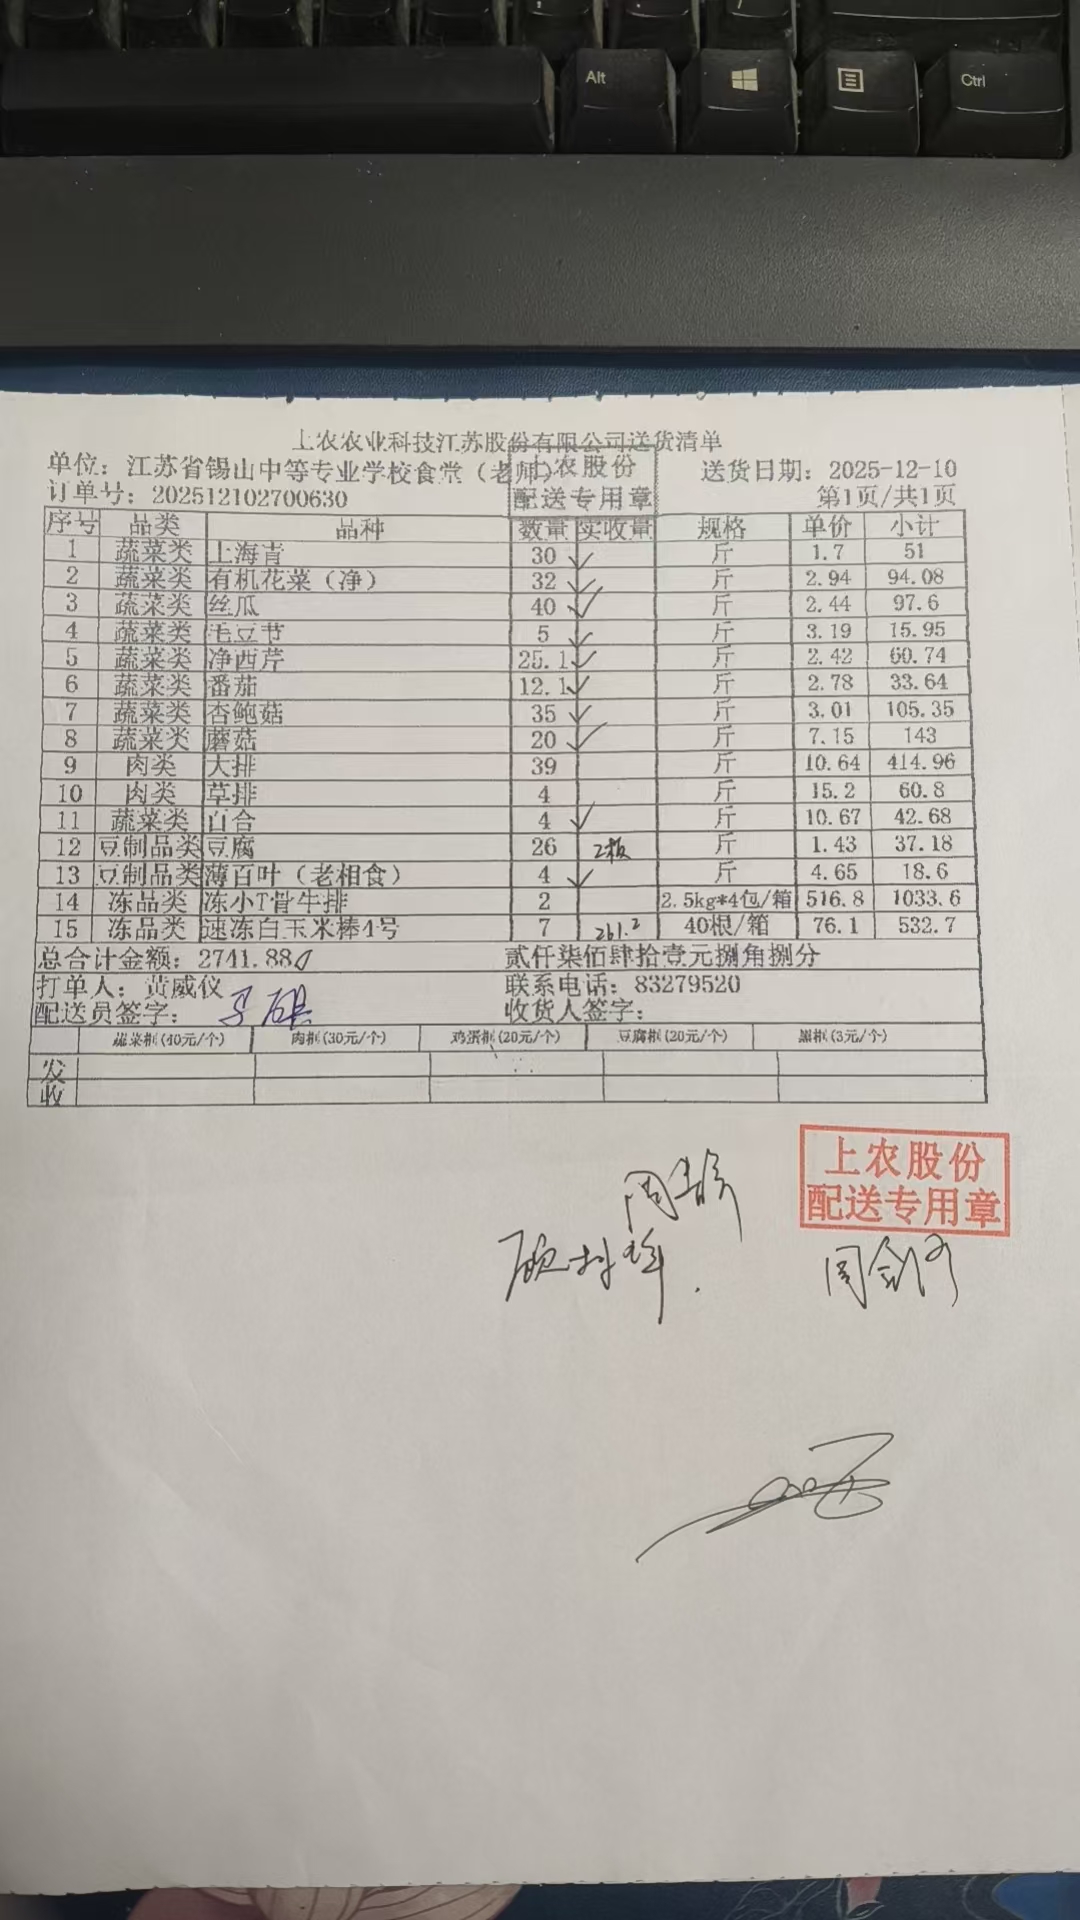 Alt
Ctrl
上农农业科技江苏股份有限公司送货清单
单位：江苏省锡山中等专业学校食堂（老师） 送货日期：2025-12-10
上农股份
配送专用章
订单号：202512102700630 第1页/共1页
序号 品类 品种 数量 实收量 规格 单价 小计
1 蔬菜类 上海青 30 ✓ 斤 1.7 51
2 蔬菜类 有机花菜（净） 32 ✓ 斤 2.94 94.08
3 蔬菜类 丝瓜 40 ✓ 斤 2.44 97.6
4 蔬菜类 毛豆节 5 ✓ 斤 3.19 15.95
5 蔬菜类 净西芹 25.1 ✓ 斤 2.42 60.74
6 蔬菜类 番茄 12.1 ✓ 斤 2.78 33.64
7 蔬菜类 杏鲍菇 35 ✓ 斤 3.01 105.35
8 蔬菜类 蘑菇 20 ✓ 斤 7.15 143
9 肉类 大排 39 斤 10.64 414.96
10 肉类 草排 4 斤 15.2 60.8
11 蔬菜类 百合 4 ✓ 斤 10.67 42.68
12 豆制品类 豆腐 26 2板 斤 1.43 37.18
13 豆制品类 薄百叶（老相食） 4 ✓ 斤 4.65 18.6
14 冻品类 冻小T骨牛排 2 2.5kg*4包/箱 516.8 1033.6
15 冻品类 速冻白玉米棒4号 7 261.2 40根/箱 76.1 532.7
总合计金额：2741.88 贰仟柒佰肆拾壹元捌角捌分
打单人：黄威仪 联系电话：83279520
配送员签字： 收货人签字：
蔬菜框(40元/个) 肉框(30元/个) 鸡蛋框(20元/个) 豆腐框(20元/个) 黑框(3元/个)
发
收
上农股份
配送专用章